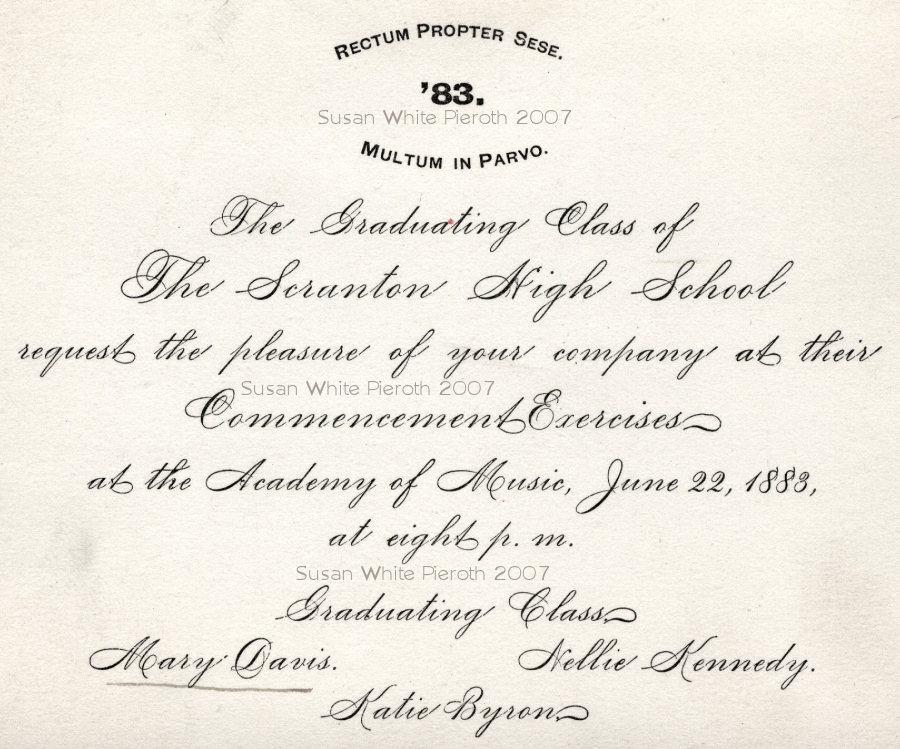 RECTUM PROPTER SESE.
'83.
Susan White Pieroth 2007
MULTUM IN PARVO.
The Graduating Class of
The Scranton High School
request the pleasure of your company at their
Susan White Pieroth 2007
Commencement Exercises
at the Academy of Music, June 22, 1883,
at eight p. m.
Susan White Pieroth 2007
Graduating Class.
Mary Davis. Nellie Kennedy.
Katie Byron.